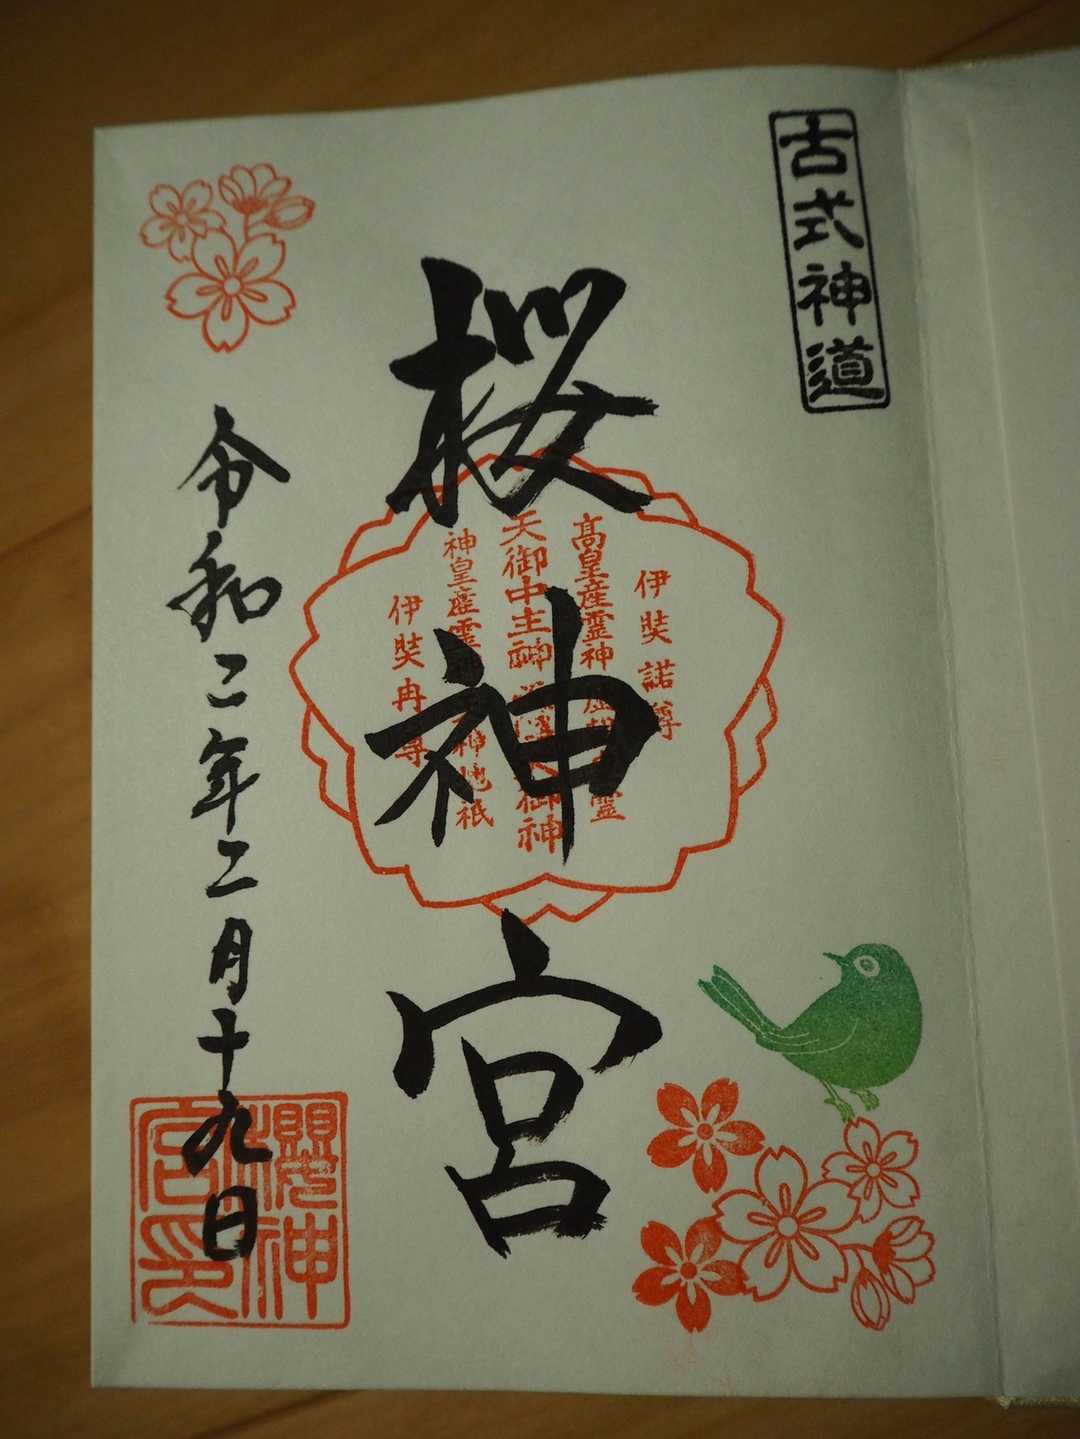 古式神道
桜神宮
伊奘諾尊
高皇産霊神
霊
天御中主神
御神
神皇産霊
神地祇
伊奘冉尊
令和二年二月十九日
櫻神
宮印